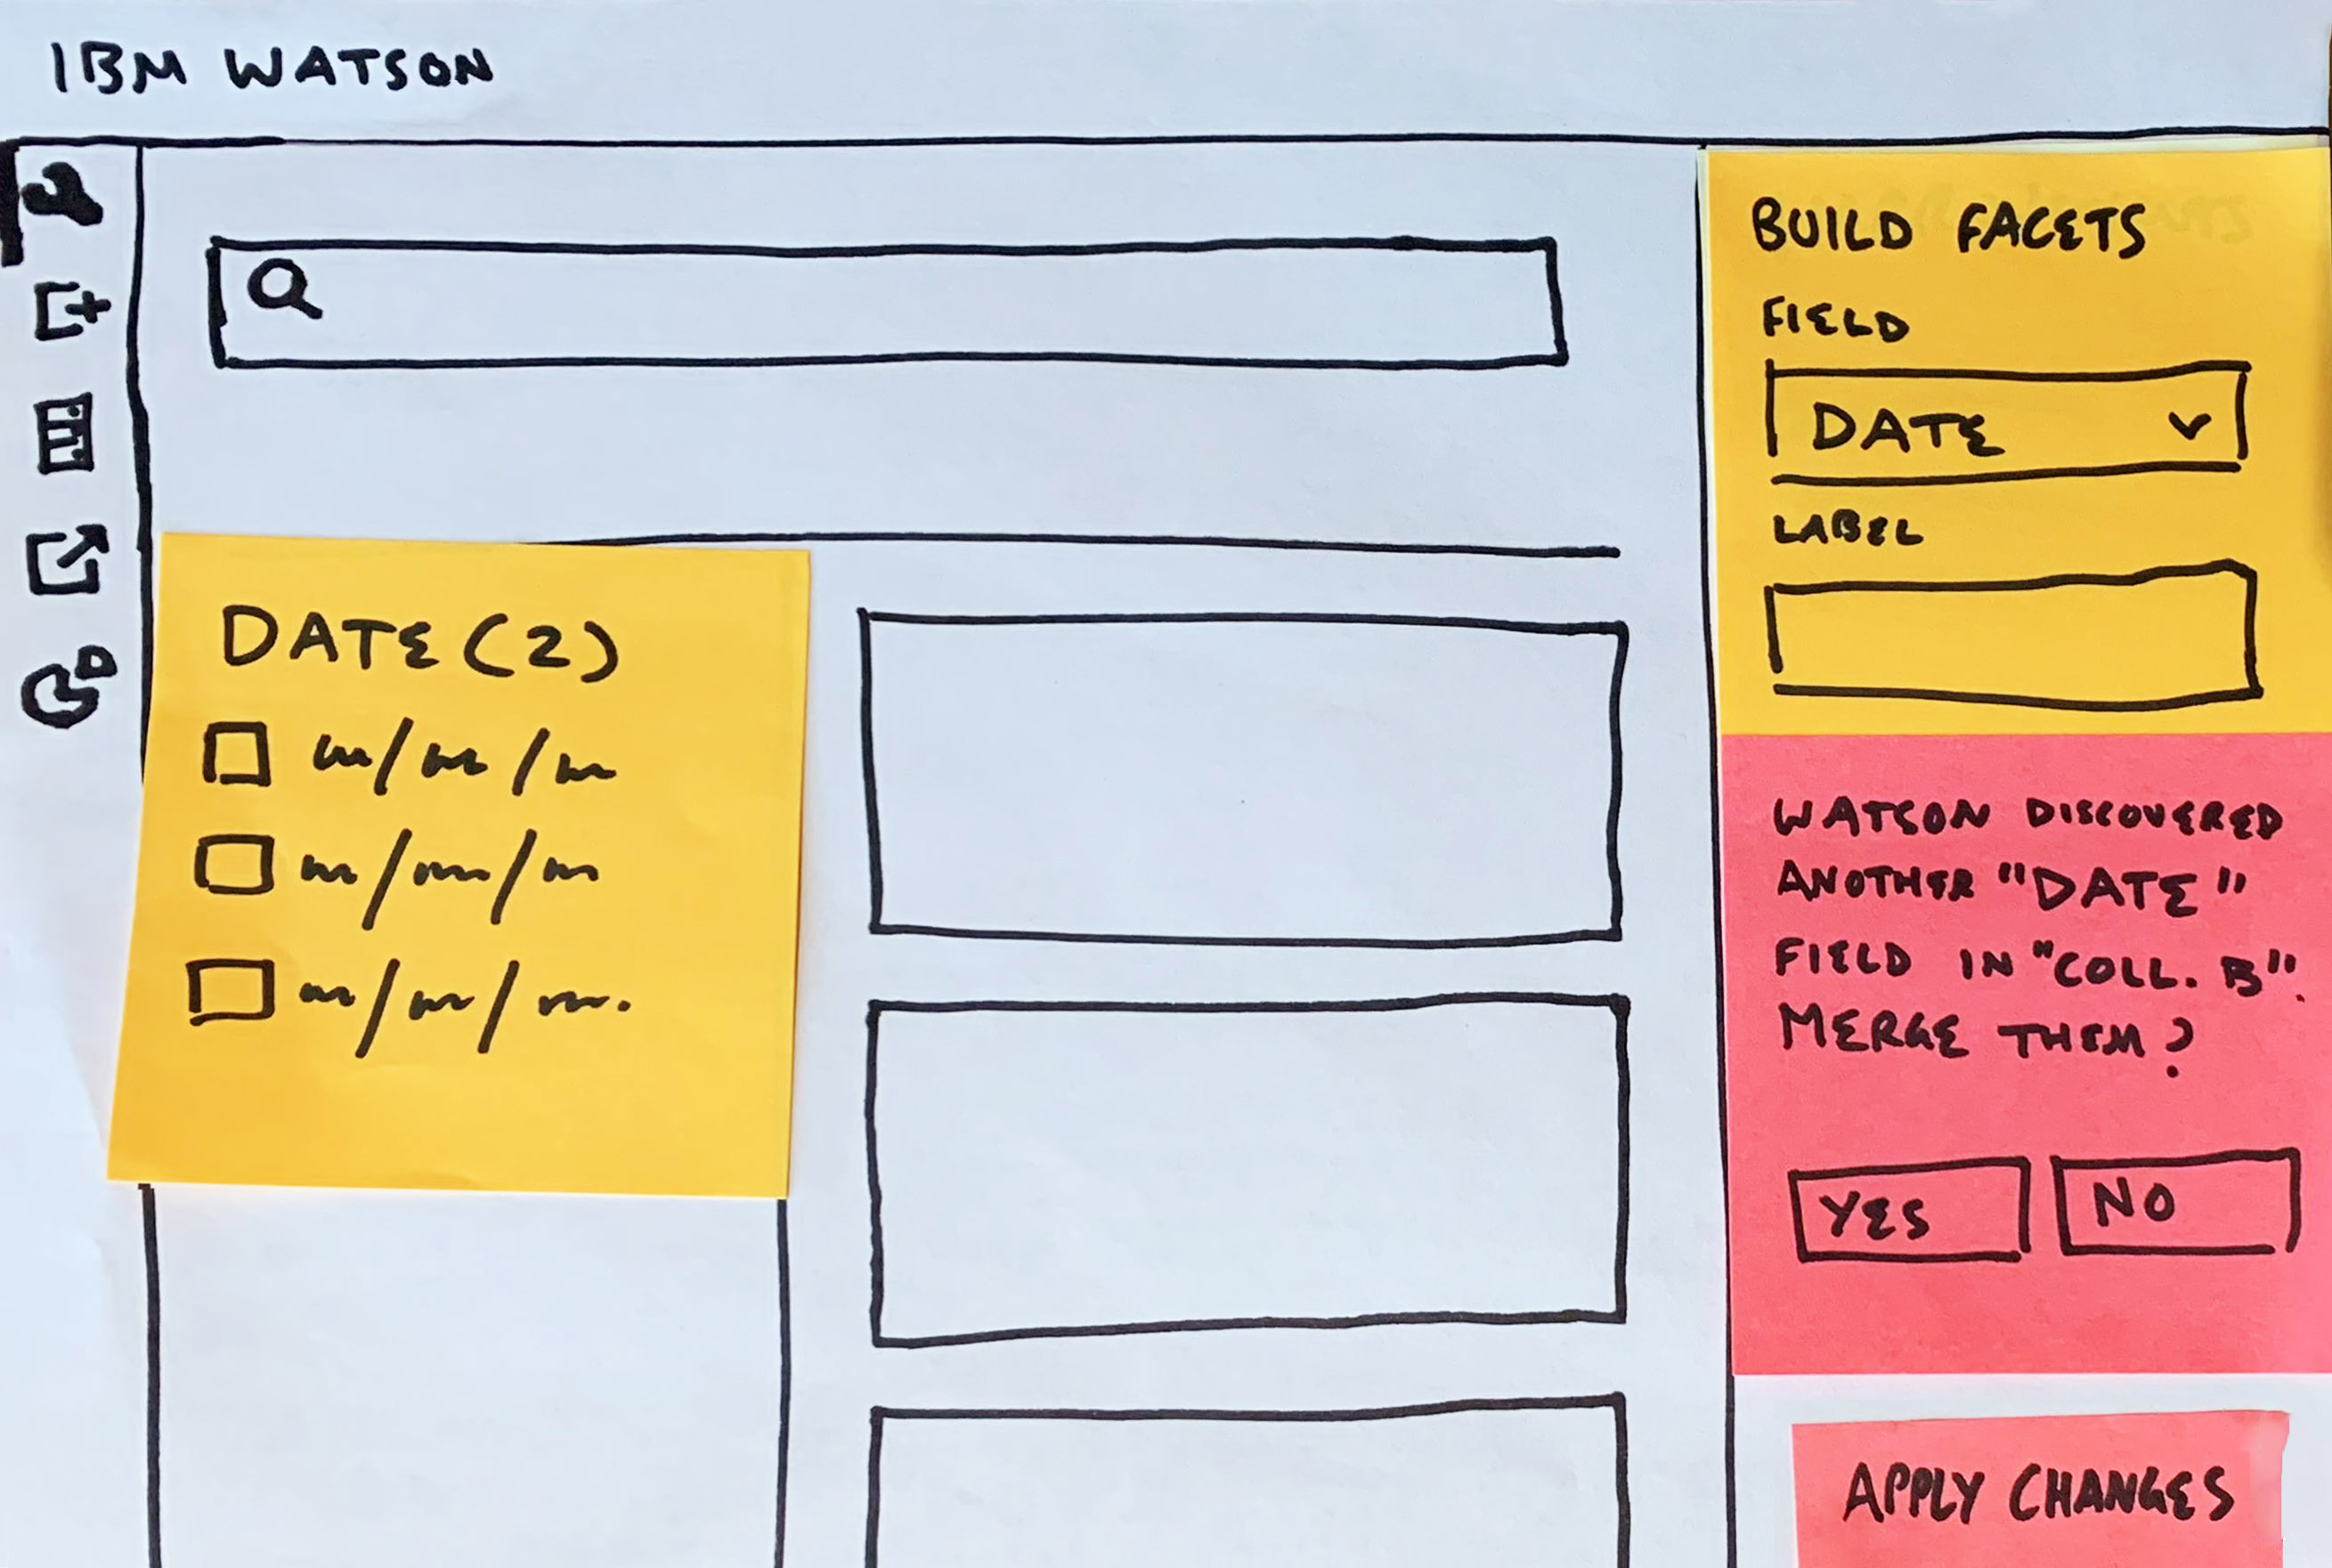 IBM WATSON
DATE (2)
BUILD FACETS
FIELD
DATE
LABEL
WATSON DISCOVERED
ANOTHER "DATE"
FIELD IN "COLL. B".
MERGE THEM?
YES
NO
APPLY CHANGES